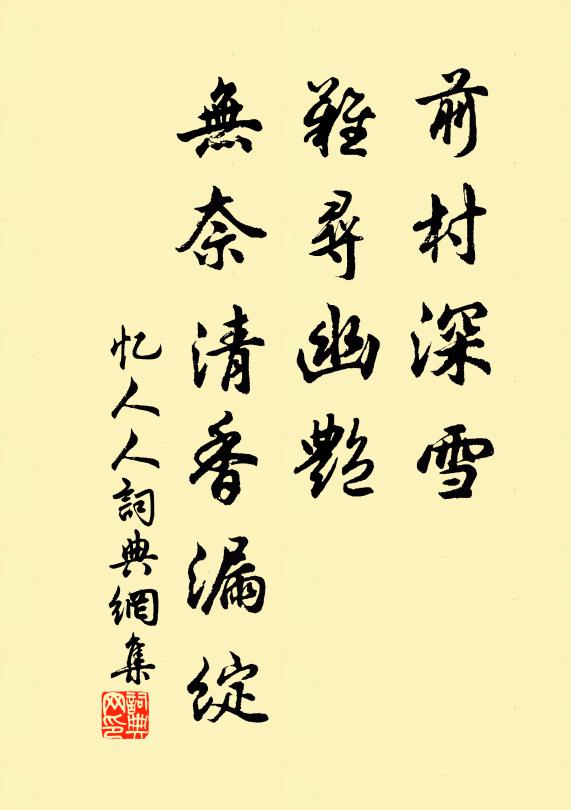 前村深雪
難尋幽艷
無奈清香漏綻
忆人人詞典網集
詞典网印